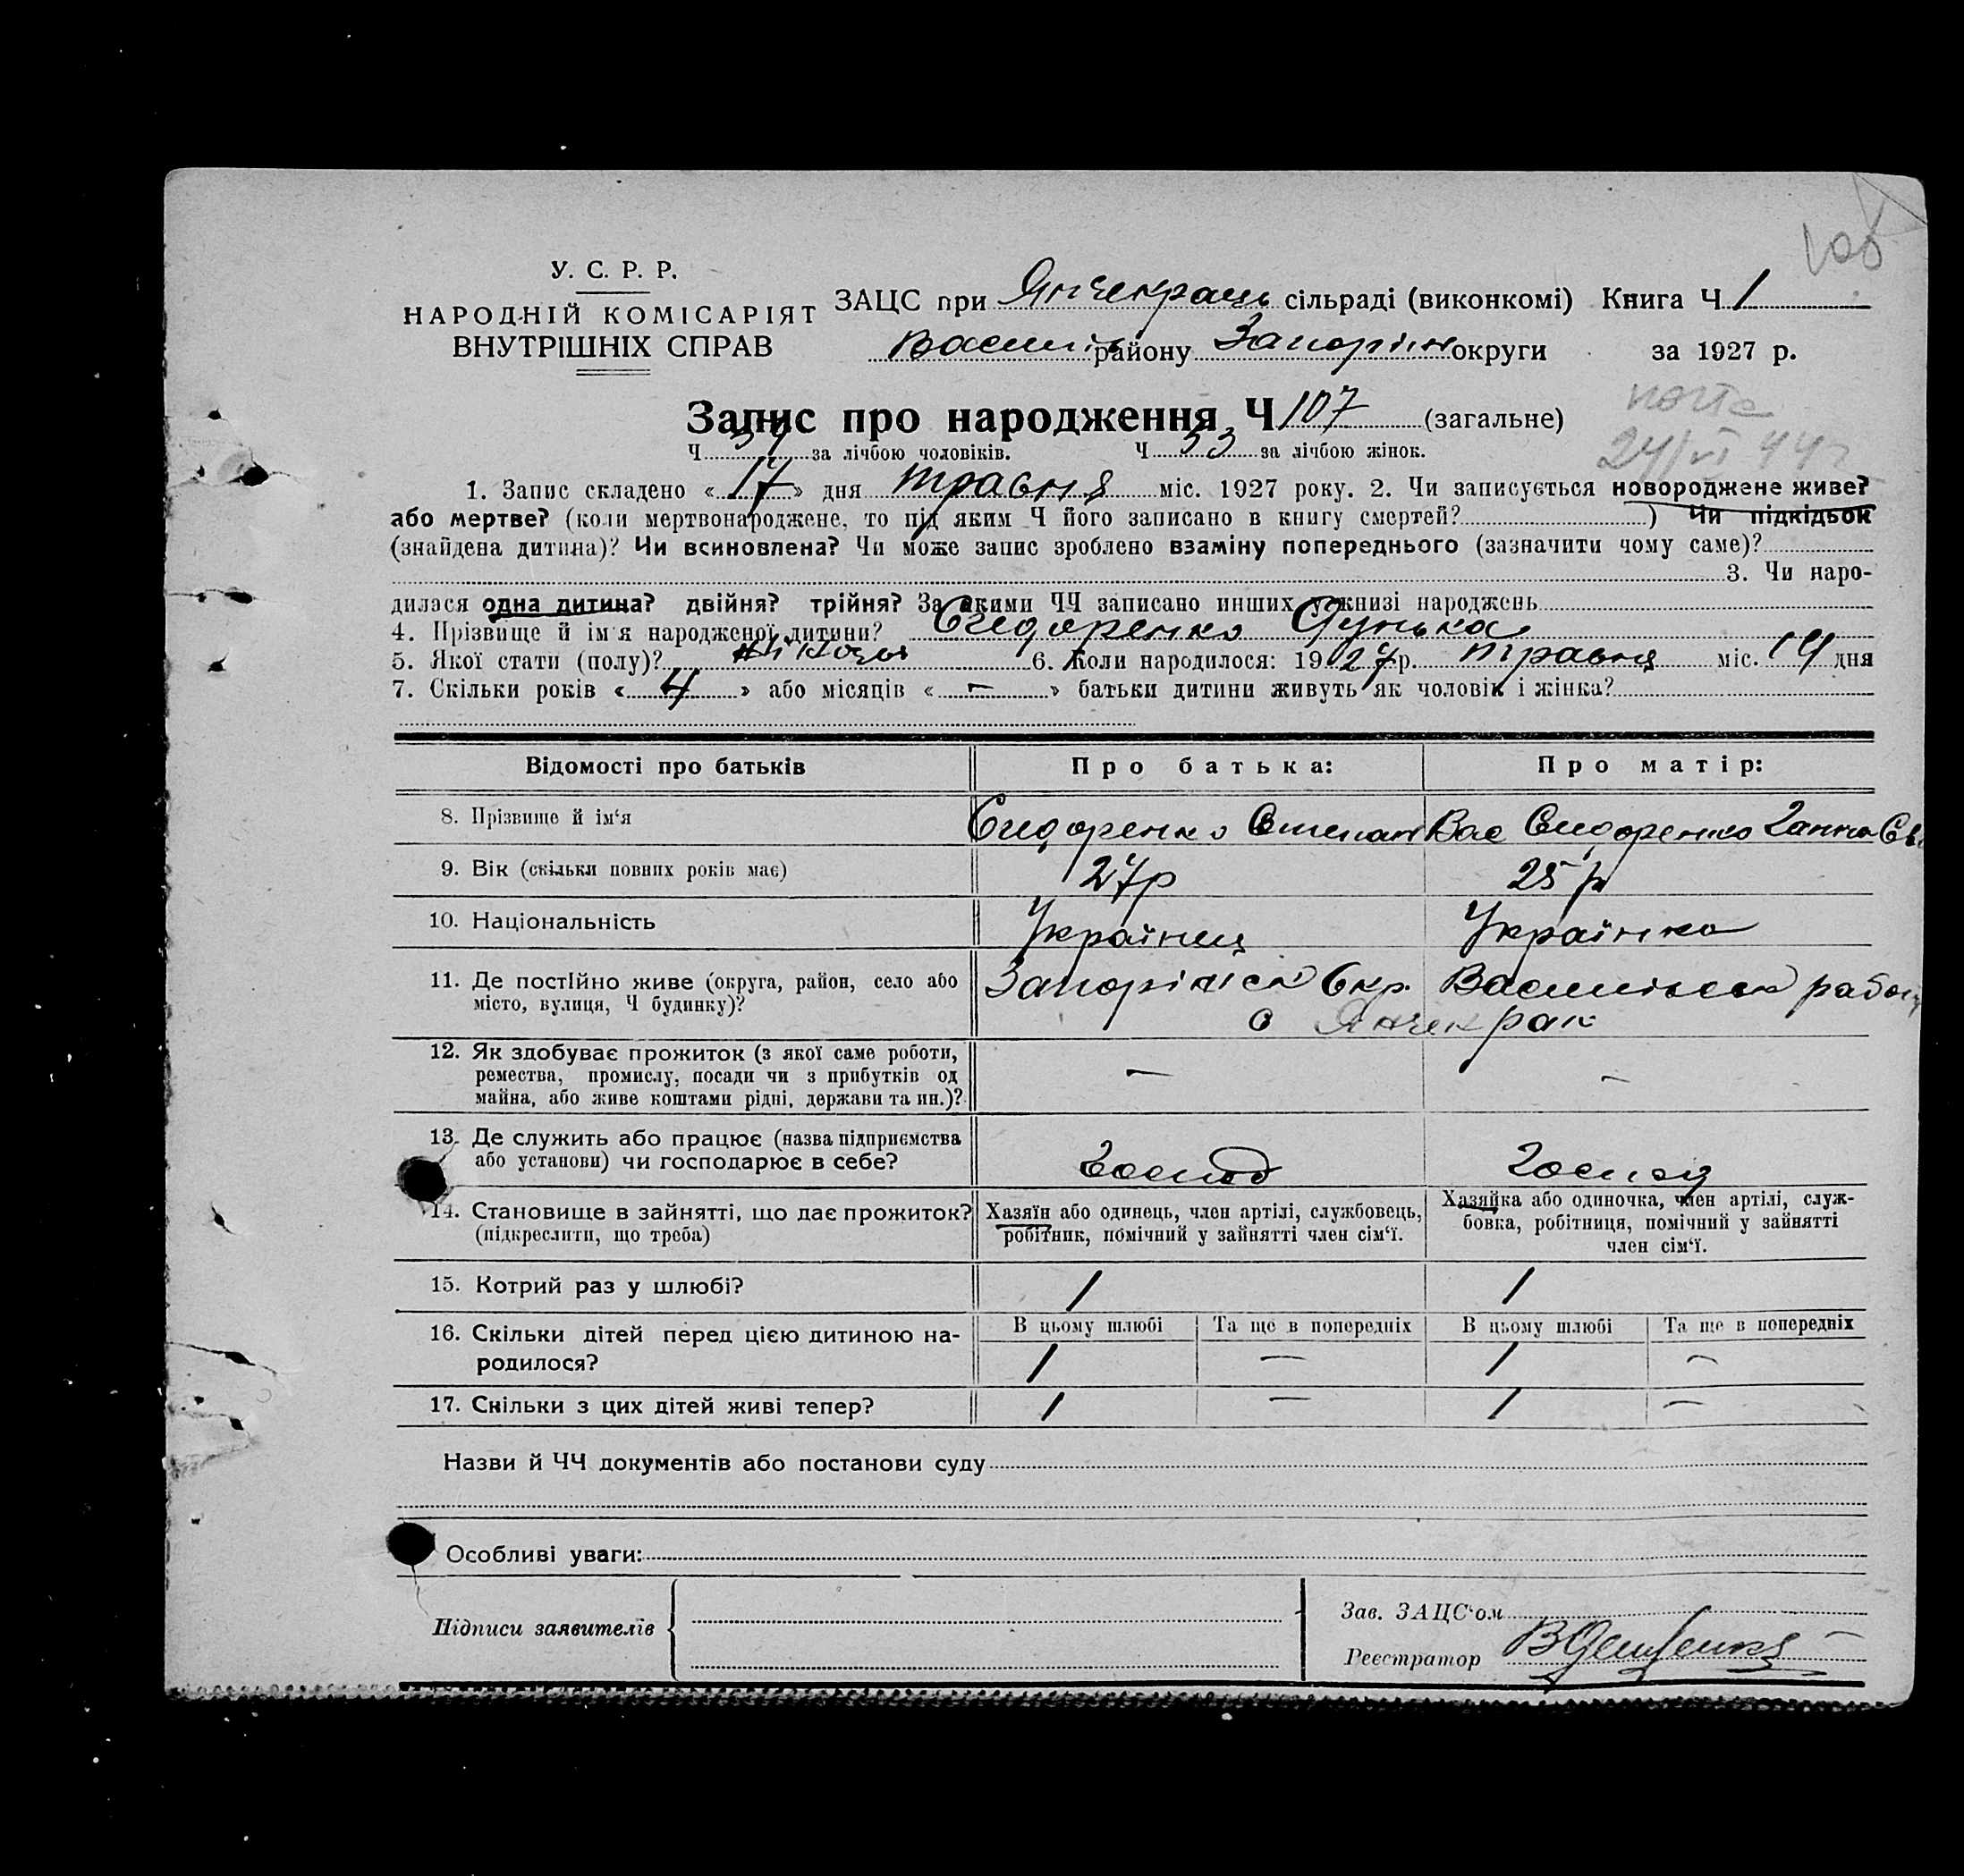 108
У. С. Р. Р.
НАРОДНІЙ КОМІСАРІЯТ
ВНУТРІШНІХ СПРАВ
ЗАЦС при Янчекраць сільраді (виконкомі) Книга Ч 1
Василів району Запоріж округи за 1927 р.
Запис про народження Ч 107 (загальне)
24/VI 44 г
Ч за лічбою чоловіків. Ч 53 за лічбою жінок.
1. Запис складено «17» дня травня міс. 1927 року. 2. Чи записується новороджене живе?
або мертве? (коли мертвонароджене, то під яким Ч його записано в книгу смертей? ) Чи підкідьок
(знайдена дитина)? Чи всиновлена? Чи може запис зроблено взаміну попереднього (зазначити чому саме)?
3. Чи наро-
дилася одна дитина? двійня? трійня? За якими ЧЧ записано инших у книзі народжень
4. Прізвище й ім'я народженої дитини? Сидоренко Дунька
5. Якої стати (полу)? Жіноча 6. Коли народилося: 1927 р. травня міс. 14 дня
7. Скільки років «4» або місяців «—» батьки дитини живуть як чоловік і жінка?
Відомості про батьків Про батька: Про матір:
8. Прізвище й ім'я Сидоренко Степан Вас Сидоренко Ганна
9. Вік (скільки повних років має) 27р 25 р
10. Національність Українец Українка
11. Де постійно живе (округа, район, село або Запоріжск Окр. Василівськ район
місто, вулиця, Ч будинку)? с Янчекрак
12. Як здобуває прожиток (з якої саме роботи, — —
ремества, промислу, посади чи з прибутків од
майна, або живе коштами рідні, держави та ин.)?
13. Де служить або працює (назва підприємства
або установи) чи господарює в себе? Господ Господ
14. Становище в зайнятті, що дає прожиток? Хазяїн або одинець, член артілі, службовець, Хазяйка або одиночка, член артілі, служ-
(підкреслити, що треба) робітник, помічний у зайнятті член сім'ї. бовка, робітниця, помічний у зайнятті
член сім'ї.
15. Котрий раз у шлюбі? 1 1
16. Скільки дітей перед цією дитиною на- В цьому шлюбі Та ще в попередніх В цьому шлюбі Та ще в попередніх
родилося? 1 — 1 —
17. Скільки з цих дітей живі тепер? 1 — 1 —
Назви й ЧЧ документів або постанови суду
Особливі уваги:
Підписи заявителів
Зав. ЗАЦС'ом
Реєстратор